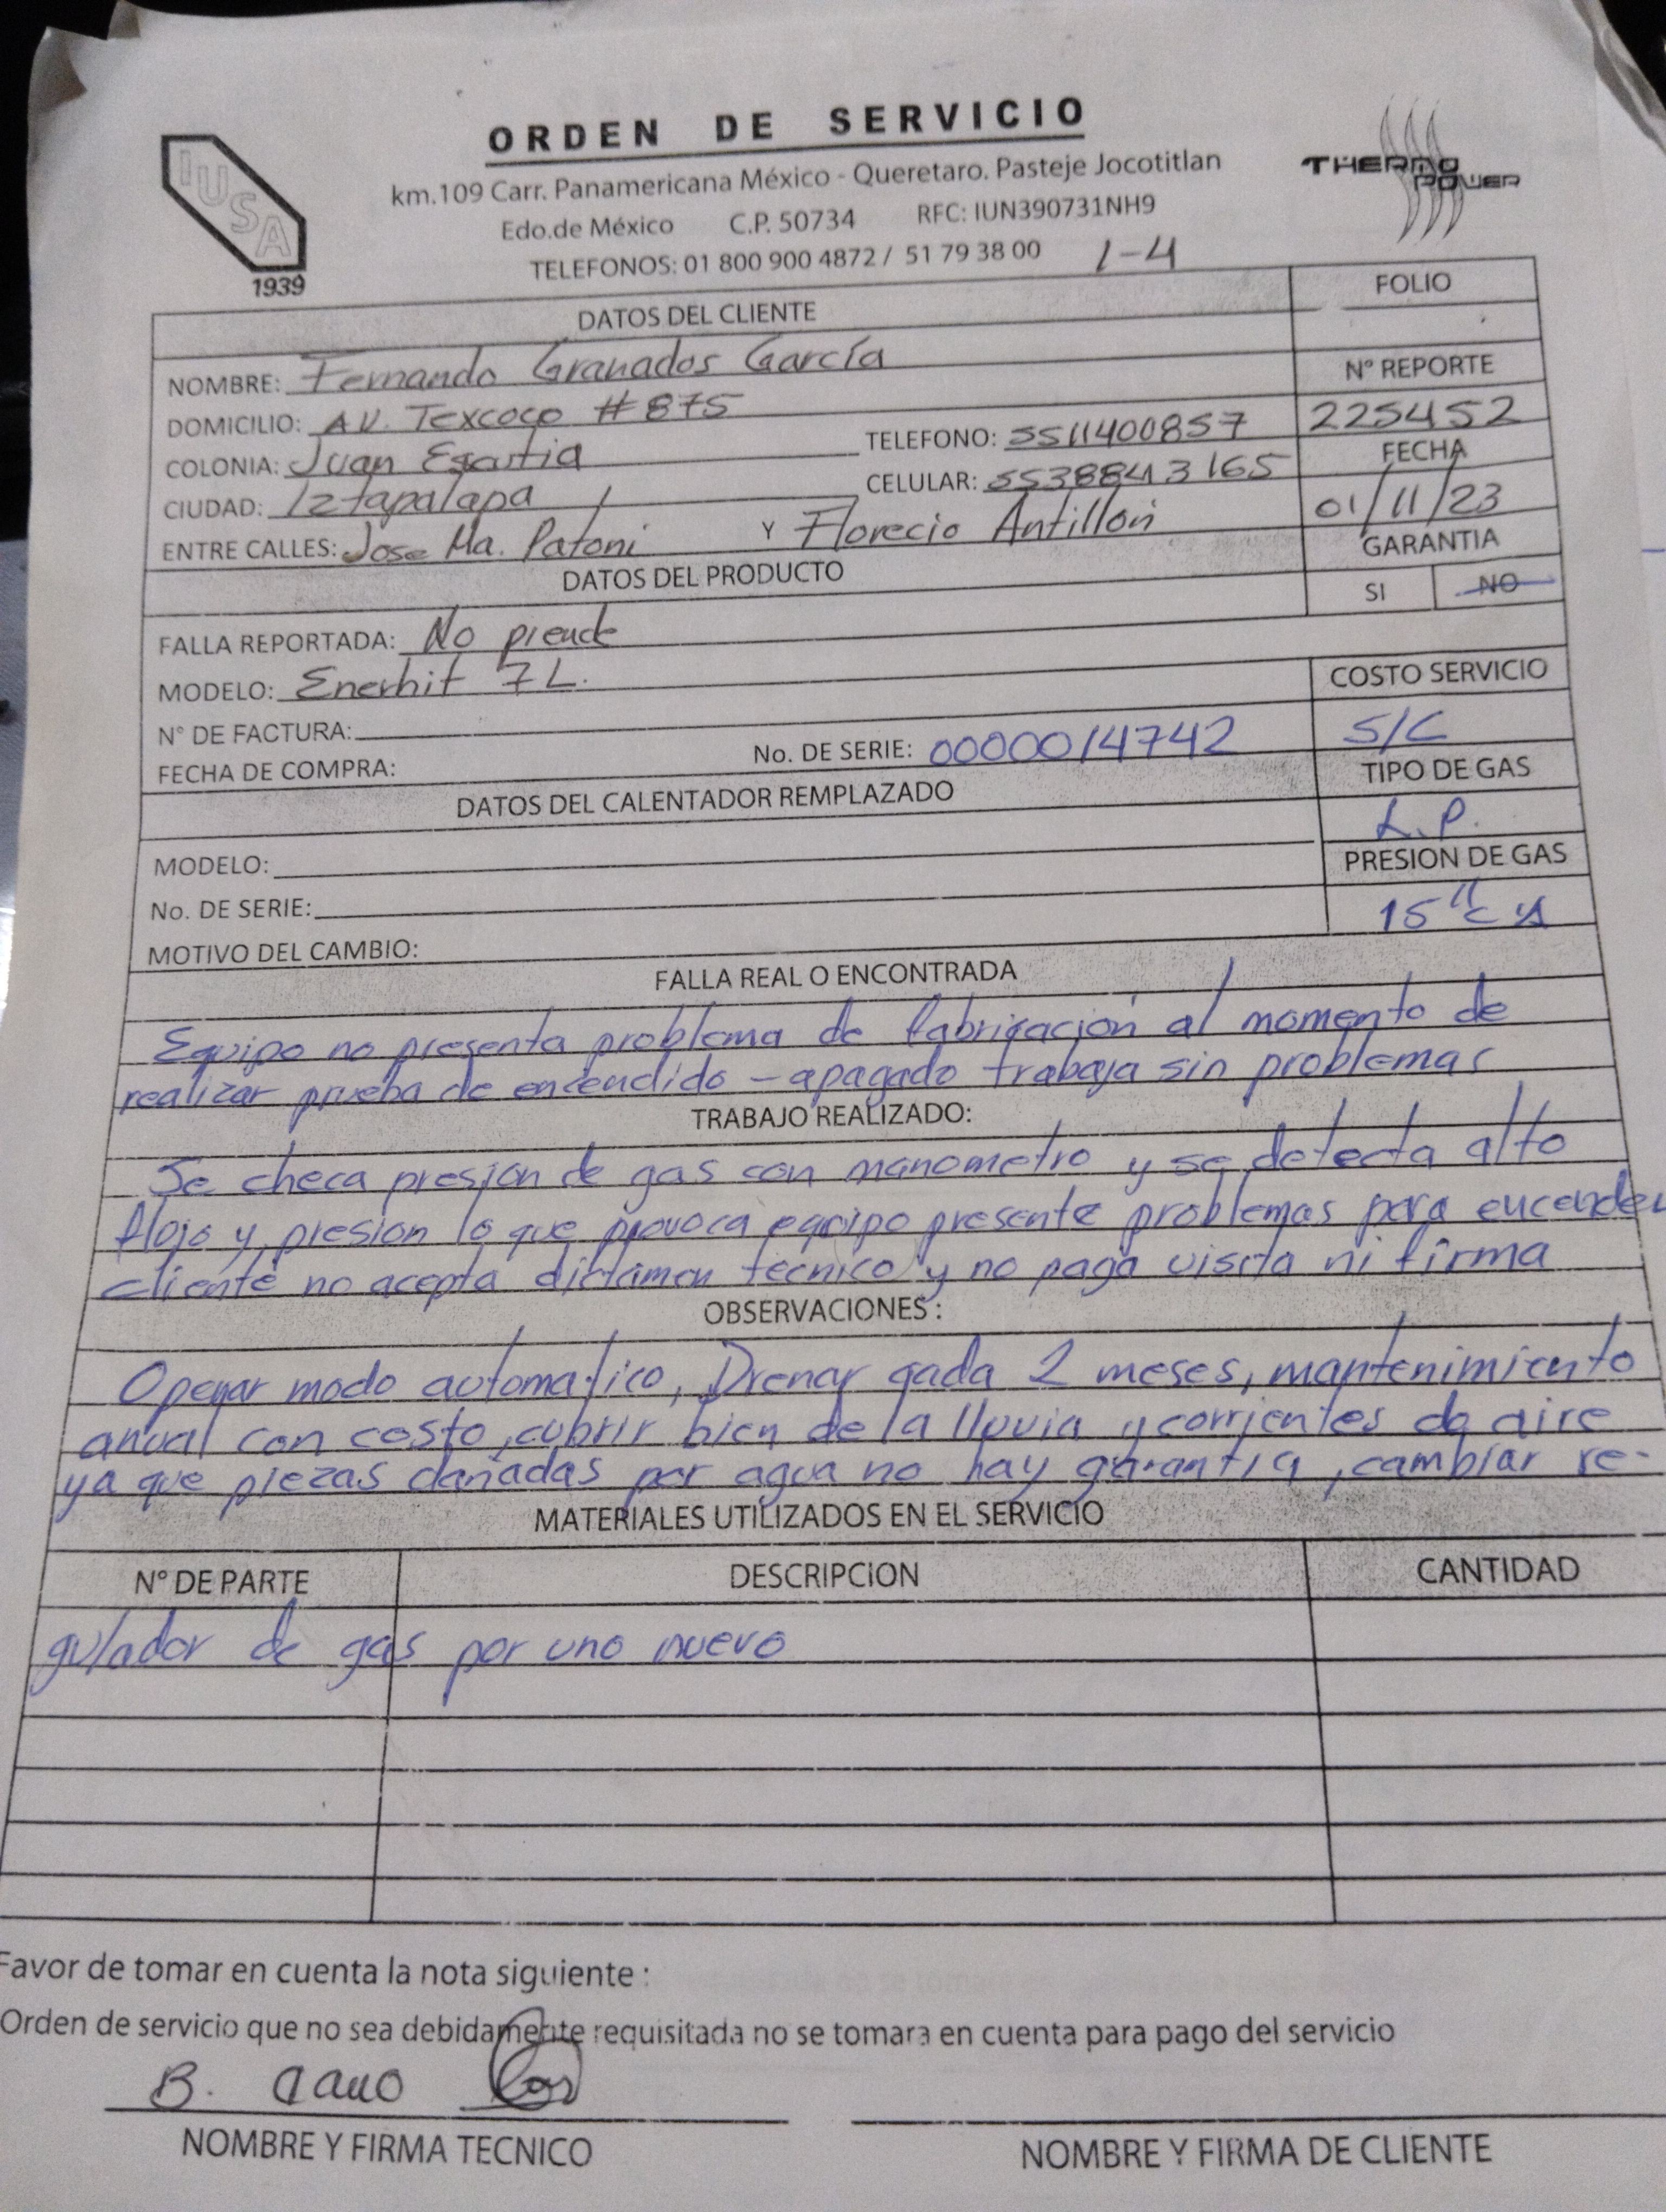 ORDEN DE SERVICIO
IUSA
1939
THERMO
POWER
km.109 Carr. Panamericana México - Queretaro. Pasteje Jocotitlan
Edo.de México C.P. 50734 RFC: IUN390731NH9
TELEFONOS: 01 800 900 4872 / 51 79 38 00 1-4
DATOS DEL CLIENTE
FOLIO
NOMBRE: Fernando Granados García
Nº REPORTE
DOMICILIO: AV. Texcoco #875
225452
COLONIA: Juan Escutia TELEFONO: 5511400857
FECHA
CIUDAD: Iztapalapa CELULAR: 5538843165
01/11/23
ENTRE CALLES: Jose Ma. Patoni Y Florecio Antillón
GARANTIA
DATOS DEL PRODUCTO
SI NO
FALLA REPORTADA: No prende
MODELO: Enerhit 7L.
COSTO SERVICIO
N° DE FACTURA:
S/C
FECHA DE COMPRA: No. DE SERIE: 00000014742
TIPO DE GAS
DATOS DEL CALENTADOR REMPLAZADO
L.P.
MODELO:
PRESION DE GAS
No. DE SERIE:
15" CA
MOTIVO DEL CAMBIO:
FALLA REAL O ENCONTRADA
Equipo no presenta problema de fabricación al momento de
realizar prueba de encendido - apagado trabaja sin problemas
TRABAJO REALIZADO:
Se checa presion de gas con manometro y se detecta alto
flojo y presion lo que provoca equipo presente problemas para encender
cliente no acepta dictamen tecnico y no paga visita ni firma
OBSERVACIONES:
Operar modo automatico, Drenar cada 2 meses, mantenimiento
anual con costo, cubrir bien de la lluvia y corrientes de aire
ya que piezas dañadas por agua no hay garantia, cambiar re-
MATERIALES UTILIZADOS EN EL SERVICIO
N° DE PARTE DESCRIPCION CANTIDAD
gulador de gas por uno nuevo
Favor de tomar en cuenta la nota siguiente :
Orden de servicio que no sea debidamente requisitada no se tomara en cuenta para pago del servicio
B. Cano
NOMBRE Y FIRMA TECNICO NOMBRE Y FIRMA DE CLIENTE